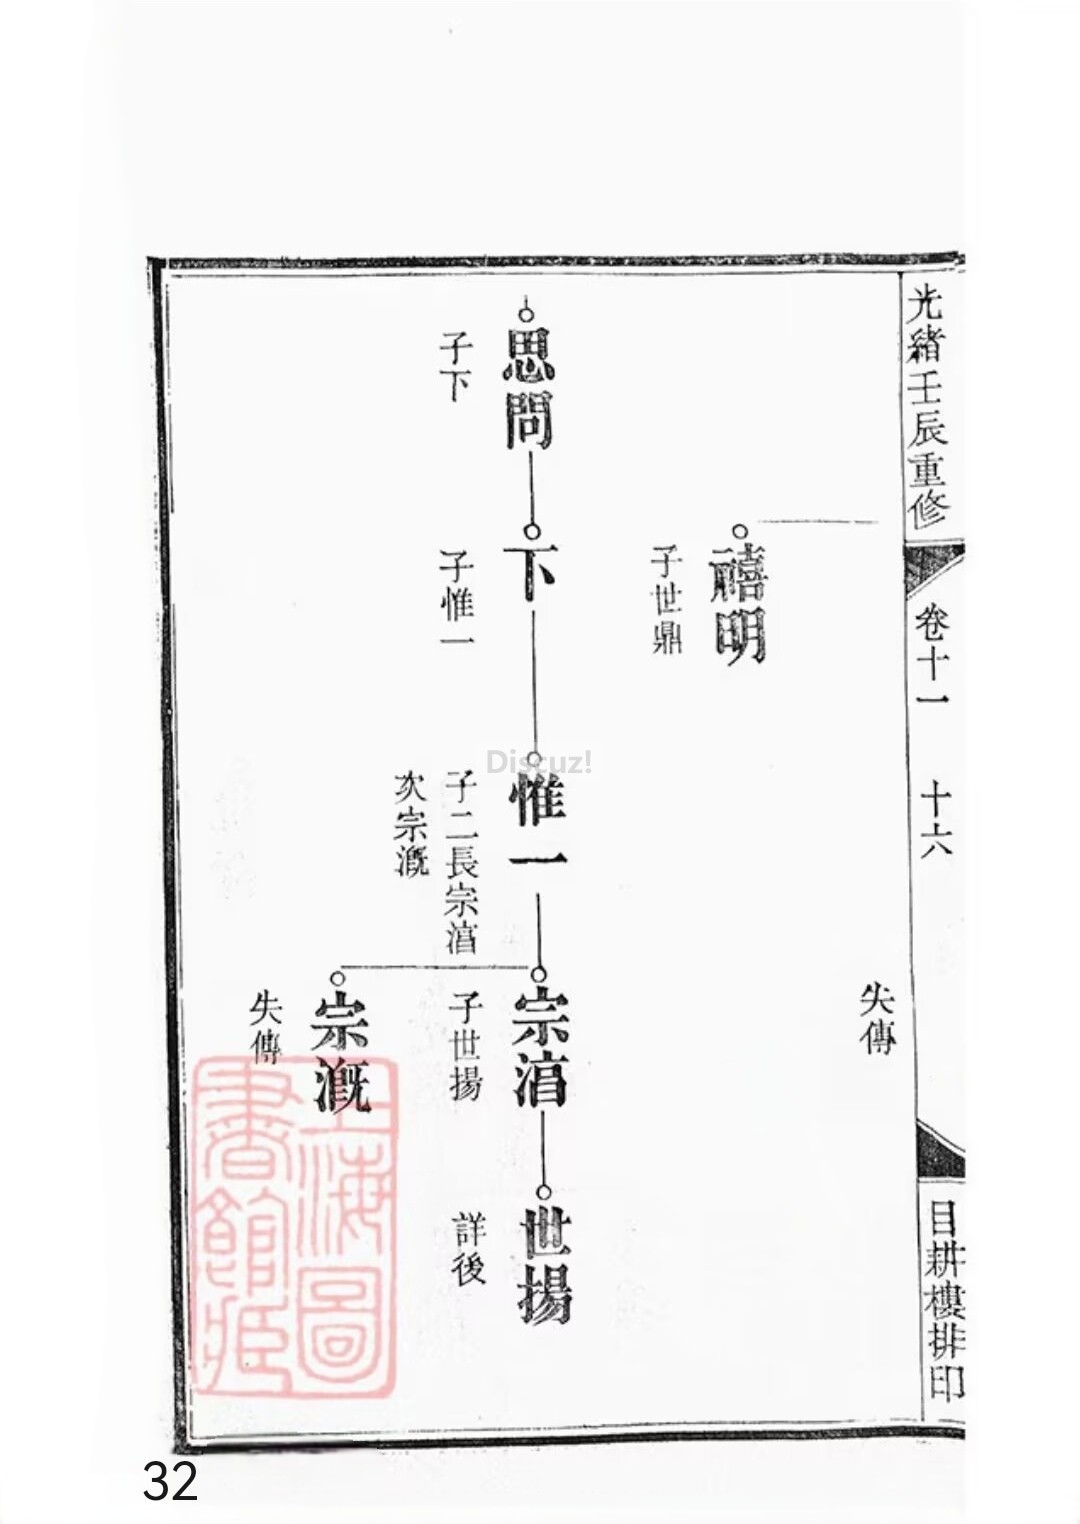 光緒壬辰重修
卷十一
十六
目耕樓排印
失傳
禧明
子世鼎
思問
子下
下
子惟一
惟一
子二長宗湻
次宗溉
宗湻
子世揚
世揚
詳後
宗溉
失傳
上海圖
書館藏
Discuz!
32